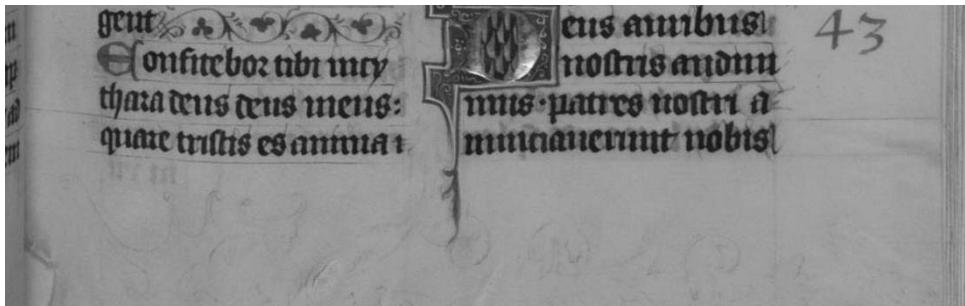 gent
Confitebor tibi in cy
thara deus deus meus:
quare tristis es anima i
Deus auribus
nostris audiui
mus · patres nostri a
nunciauerunt nobis
43